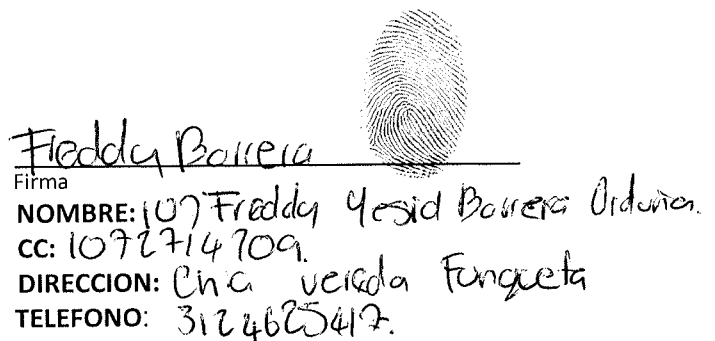 Freddy Barrera
Firma
NOMBRE: 107 Freddy Yesid Barrera Orduña.
CC: 1072714709.
DIRECCION: Chia vereda Fonqueta
TELEFONO: 3124625417.